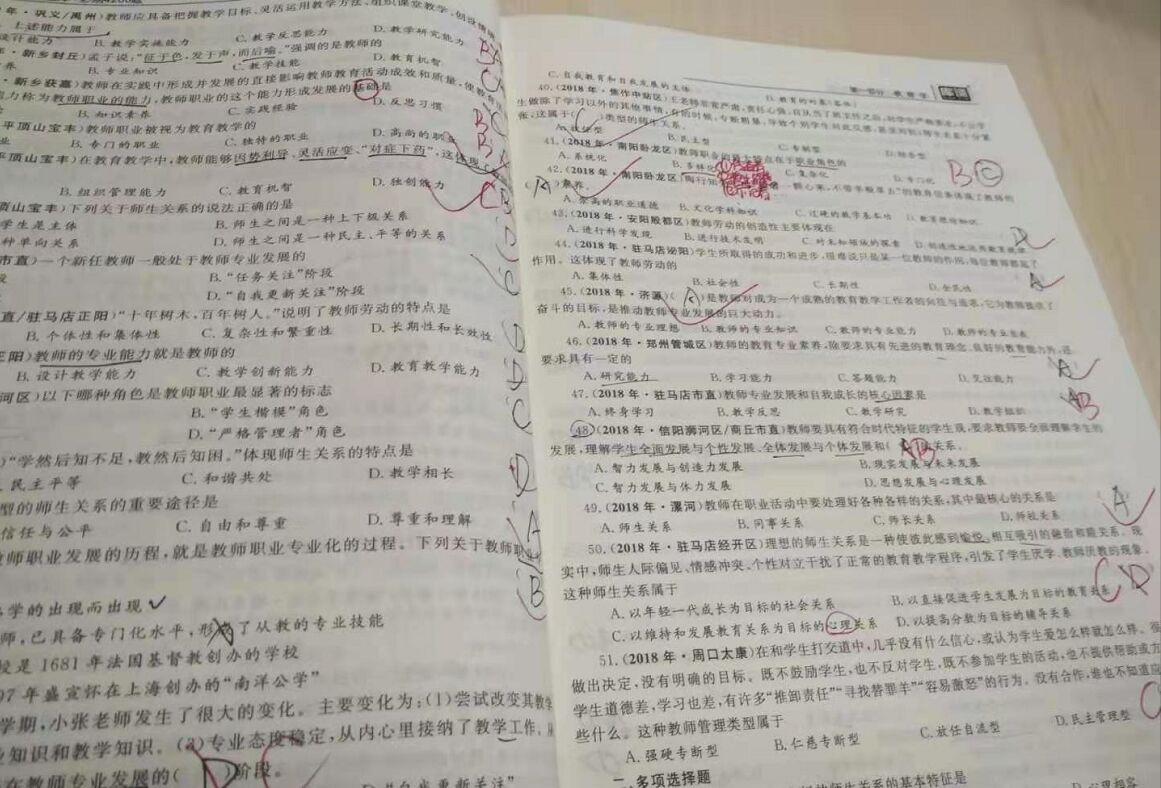 年·巩义/禹州)教师应具备把握教学目标、灵活运用教学方法、组织课堂教学、创设情境
上述能力属于
设计能力 B. 教学实施能力 C. 教学反思能力 D. 教学研究能力
·新乡封丘)孟子说:“征于色,发于声,而后喻。”强调的是教师的
养 B. 专业知识 C. 教学技能 D. 教育机智
·新乡获嘉)教师在实践中形成并发展的直接影响教师教育活动成效和质量、使教育活
力称为教师职业的能力,教师职业的这个能力形成发展的基础是
B. 知识素养 C. 实践经验 D. 反思习惯
平顶山宝丰)教师职业被视为教育教学的
业 B. 专门的职业 C. 独特的职业 D. 高尚的职业
平顶山宝丰)在教育教学中,教师能够因势利导、灵活应变、“对症下药”,这体现
B. 组织管理能力 C. 教育机智 D. 独创能力
顶山宝丰)下列关于师生关系的说法正确的是
学生是主体 B. 师生之间是一种上下级关系
种单向关系 D. 师生之间是一种民主、平等的关系
市直)一个新任教师一般处于教师专业发展的
段 B. “任务关注”阶段
D. “自我更新关注”阶段
直/驻马店正阳)“十年树木,百年树人。”说明了教师劳动的特点是
B. 个体性和集体性 C. 复杂性和繁重性 D. 长期性和长效性
正阳)教师的专业能力就是教师的
B. 设计教学能力 C. 教学创新能力 D. 教育教学能力
河区)以下哪种角色是教师职业最显著的标志
B. “学生楷模”角色
D. “严格管理者”角色
)“学然后知不足,教然后知困。”体现师生关系的特点是
民主平等 C. 和谐共处 D. 教学相长
型的师生关系的重要途径是
信任与公平 C. 自由和尊重 D. 尊重和理解
教师职业发展的历程,就是教师职业专业化的过程。下列关于教师职
学的出现而出现
师,已具备专门化水平,形成了从教的专业技能
校是 1681 年法国基督教创办的学校
97 年盛宣怀在上海创办的“南洋公学”
学期,小张老师发生了很大的变化。主要变化为:(1)尝试改变其教学
业知识和教学知识。(3)专业态度稳定,从内心里接纳了教学工作,
在教师专业发展的( D )阶段。
D. “自我更新关注”
第一部分 教育学
C. 自我教育和自我发展的主体 D. 教育的对象(客体)
40. (2018 年·焦作中站区)王老师非常严肃,责任心强,自从当了班主任之后,对学生严格要求,不允许学
生做除了学习以外的其他事情,有的时候,专断粗暴,导致个别学生对此反感,甚至对抗,师生关系十分紧
张,这属于( C )类型的师生关系。
A. 放任型 B. 民主型 C. 专制型 D. 综合型
41. (2018 年·南阳卧龙区)教师职业的最大特点在于职业角色的
A. 系统化 B. 多样化 C. 复杂化 D. 专门化
B C
42. (2018 年·南阳卧龙区)陶行知
( A )素养。
A. 崇高的职业道德 B. 文化学科知识 C. 过硬的教学基本功 D. 教育理论知识
43. (2018 年·安阳殷都区)教师劳动的创造性主要体现在
D
A. 进行科学发现 B. 进行技术发明 C. 对未知领域的探索 D. 创造性地运用教育规律
44. (2018 年·驻马店泌阳)学生所取得的成功和进步,很难说只是某一位教师的作用,每位教师都起了
作用。这体现了教师劳动的
A
A. 集体性 B. 社会性 C. 长期性 D. 全民性
45. (2018 年·济源)( A )是教师对成为一个成熟的教育教学工作者的向往与追求,它为教师提供了
奋斗的目标,是推动教师专业发展的巨大动力。
A. 教师的专业理想 B. 教师的专业知识 C. 教师的专业能力 D. 教师的专业自我
46. (2018 年·郑州管城区)教师的教育专业素养,除要求具有先进的教育理念、良好的教育能力外,还
要求具有一定的
A
A. 研究能力 B. 学习能力 C. 答题能力 D. 交往能力
47. (2018 年·驻马店市直)教师专业发展和自我成长的核心因素是
B
A. 终身学习 B. 教学反思 C. 教学研究 D. 教学组织
48. (2018 年·信阳浉河区/商丘市直)教师要具有符合时代特征的学生观,要求教师要全面理解学生的
发展,理解学生全面发展与个性发展、全体发展与个体发展和( B )关系。
A. 智力发展与创造力发展 B. 现实发展与未来发展
C. 智力发展与体力发展 D. 思想发展与心理发展
49. (2018 年·漯河)教师在职业活动中要处理好各种各样的关系,其中最核心的关系是
A
A. 师生关系 B. 同事关系 C. 师长关系 D. 师校关系
50. (2018 年·驻马店经开区)理想的师生关系是一种使彼此感到愉悦、相互吸引的融洽和睦关系。现
实中,师生人际偏见、情感冲突、个性对立干扰了正常的教育教学程序,引发了学生厌学、教师厌教的现象。
这种师生关系属于
C D
A. 以年轻一代成长为目标的社会关系 B. 以直接促进学生发展为目标的教育关系
C. 以维持和发展教育关系为目标的心理关系 D. 以提高分数为目标的辅导关系
51. (2018 年·周口太康)在和学生打交道中,几乎没有什么信心,或认为学生爱怎么样就怎么样。很
做出决定,没有明确的目标。既不鼓励学生,也不反对学生,既不参加学生的活动,也不提供帮助或方
学生道德差,学习也差,有许多“推卸责任”“寻找替罪羊”“容易激怒”的行为。没有合作,谁也不知道应
些什么。这种教师管理类型属于
A. 强硬专断型 B. 仁慈专断型 C. 放任自流型 D. 民主管理型
二、多项选择题
师生关系的基本特征是
D. 心理相容